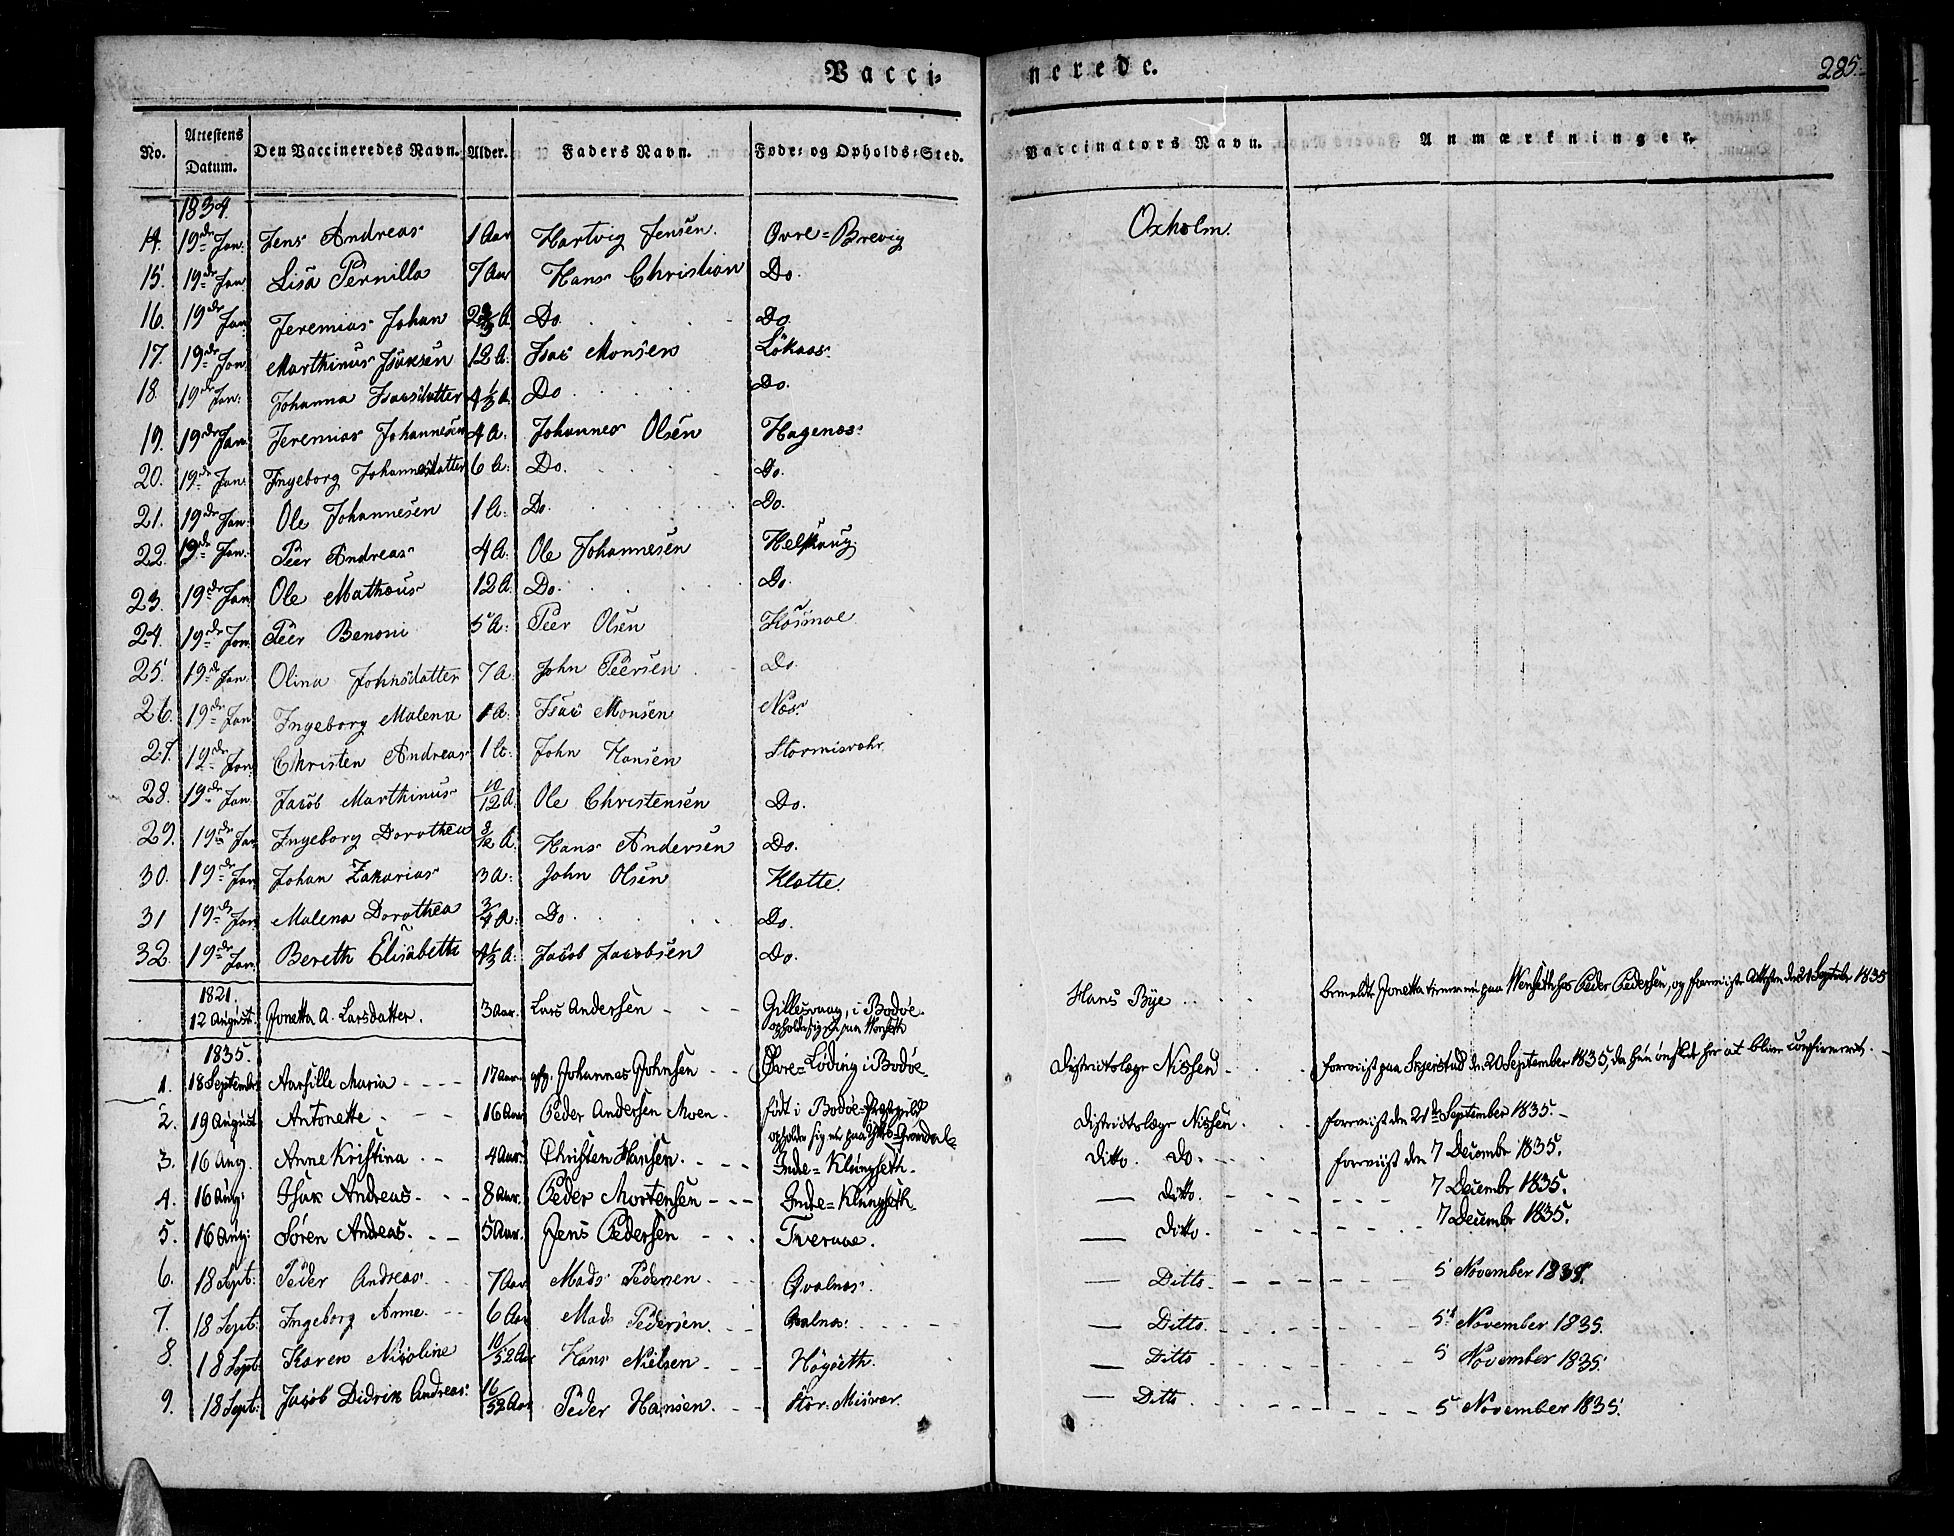 Vacci-nerede. 285.
No. Attestens Datum. Den Vaccineredes Navn. Alder. Faders Navn. Føde- og Opholds-Sted. Vaccinators Navn. Anmærkninger.
1834.
14. 19de Jan. Jens Andreas 1 Aar Hartvig Jensen. Øvre=Brevig Oxholm.
15. 19de Jan. Lisa Pernilla 7 Aar Hans Christian Do.
16. 19de Jan Jeremias Johan A. Do. Do.
17. 19de Jan Marthinus Isaksen 12 A. Isac Monsen Løkaas.
18. 19de Jan: Johanna Isacsdatter 4 1/3 A. Do. Do.
19. 19de Jan Jeremias Johannesen 4 A. Johannes Olsen Hagenæs.
20. 19de Jan. Ingeborg Johannesdatter 6 A. Do. Do.
21. 19de Jan. Ole Johannesen 1 A. Do. Do.
22. 19de Jan. Peer Andreas 4 A. Ole Johannesen Helskaug.
23. 19de Jan Ole Mathæus 12 A. Do. Do.
24. 19de Jan. Peer Benoni 5 A. Peer Olsen Kosmoe
25. 19de Jan Olina Johnsdatter 7 A. John Peersen Do.
26. 19de Jan Ingeborg Malena 1 A. Isac Monsen Næs.
27. 19de Jan. Christen Andreas 1 A. John Hansen Stormisvæhr.
28. 19de Jan. Jacob Marthinus 10/12 A. Ole Christensen Do.
29. 19de Jan Ingeborg Dorothea 8/12 A. Hans Andersen Do.
30. 19de Jan Johan Zakarias 3 A. John Olsen Klette.
31 19de Jan Malena Dorothea 3/4 A. Do. Do.
32. 19de Jan. Bereth Elisabeth 4 1/3 A. Jacob Jacobsen Do.
1821.
12 August. Jonetta A. Larsdatter. 3 Aar. Lars Andersen Gillesvaag, i Bodøe. Hans Bye bemeldte Jonetta paa Wenseth hos Peder Pedersen, og foreviiste Attesten den 21 September 1835
opholder sig nu paa Wenseth
1835.
1. 18 September Aarsille Maria 17 Aar. Johannes Johnsen Øvre=Løding i Bodøe. Districtslæge Nissen foreviist paa Skjerstad den 20 September 1835, da hun ønskede her at blive confirmeret.
2. 19 August Antonette 16 Aar Peder Andersen Moen født i Bodøe=Præstegield Districtslæge Nissen. foreviist den 21de September 1835.
opholder sig nu paa
3. 16 Aug. Anne Kristina 4 Aar. Christen Hansen. Indre=Klungseth. Ditto. Do. foreviist den 7 December 1835.
4. 16 Aug: Isak Andreas 8 Aar. Peder Mortensen Indre=Klungseth. — Ditto. 7 December 1835.
5. 16 Aug: Søren Andreas. 5 Aar. Jens Pedersen Tveraae. — Ditto. 7 December 1835.
6. 18 Sept: Peder Andreas. 7 Aar Mads Pedersen. Qvalnæs. — Ditto. 5 November 1835.
7. 18 Sept: Ingeborg Anne. 6 Aar Mads Pedersen. Qvalnæs. — Ditto. 5 November 1835.
8. 18 Sept Karen Nicoline 10/52 Aar Hans Nielsen Høgseth. — Ditto 5 November 1835.
9. 18 Sept: Jacob Didrik Andreas 16/52 Aar Peder Hansen. Stor-Misvær. — Ditto. 5 November 1835.